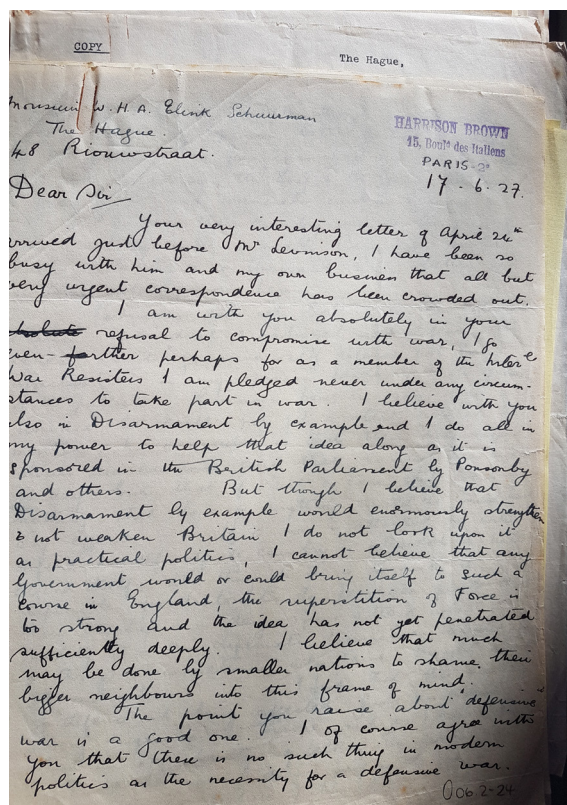 COPY
The Hague,
Monsieur W. H. A. Elink Schuurman
The Hague.
48 Riouwstraat.
HARRISON BROWN
15, Boulᵈ des Italiens
PARIS-2ᵉ
17.6.27.
Dear Sir
Your very interesting letter of April 24th
arrived just before Mr Levinson, I have been so
busy with him and my own business that all but
very urgent correspondence has been crowded out.
I am with you absolutely in your
refusal to compromise with war, I go
even farther perhaps for as a member of the Inter
War Resisters I am pledged never under any circum-
stances to take part in war. I believe with you
also in Disarmament by example and I do all in
my power to help that idea along as it is
sponsored in the British Parliament by Ponsonby
and others. But though I believe that
Disarmament by example would enormously strengthen
& not weaken Britain I do not look upon it
as practical politics, I cannot believe that any
Government would or could bring itself to such a
course in England, the superstition of Force is
too strong and the idea has not yet penetrated
sufficiently deeply. I believe that much
may be done by smaller nations to shame their
bigger neighbours into this frame of mind.
The point you raise about "defensive"
war is a good one. I of course agree with
you that there is no such thing in modern
politics as the necessity for a defensive war.
006 2-24